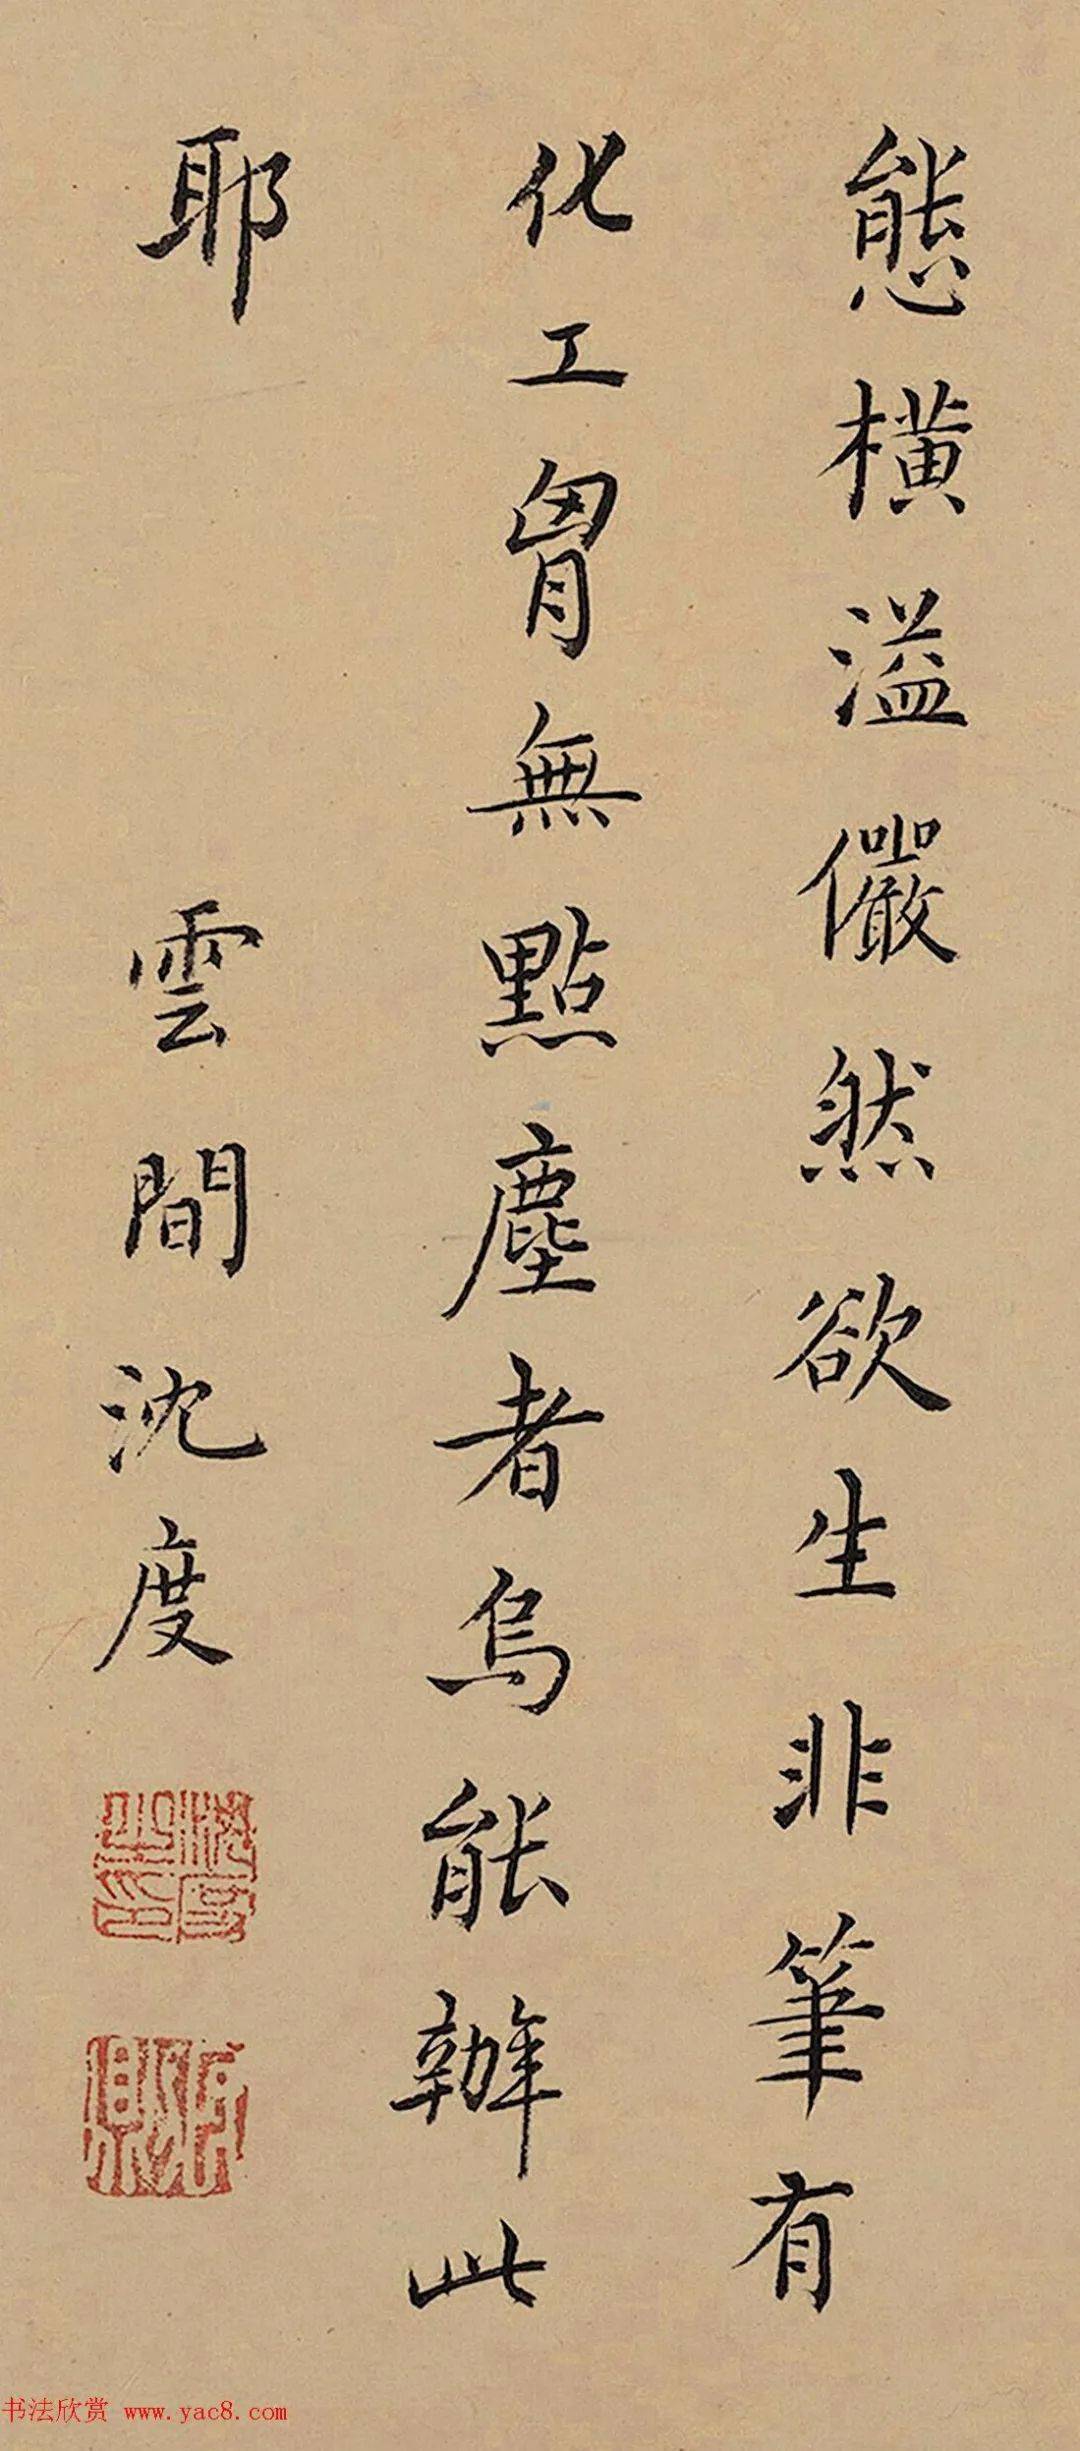 態橫溢儼然欲生非筆有
化工胷無點塵者烏能辦此
耶
雲間沈度
书法欣赏 www.yac8.com